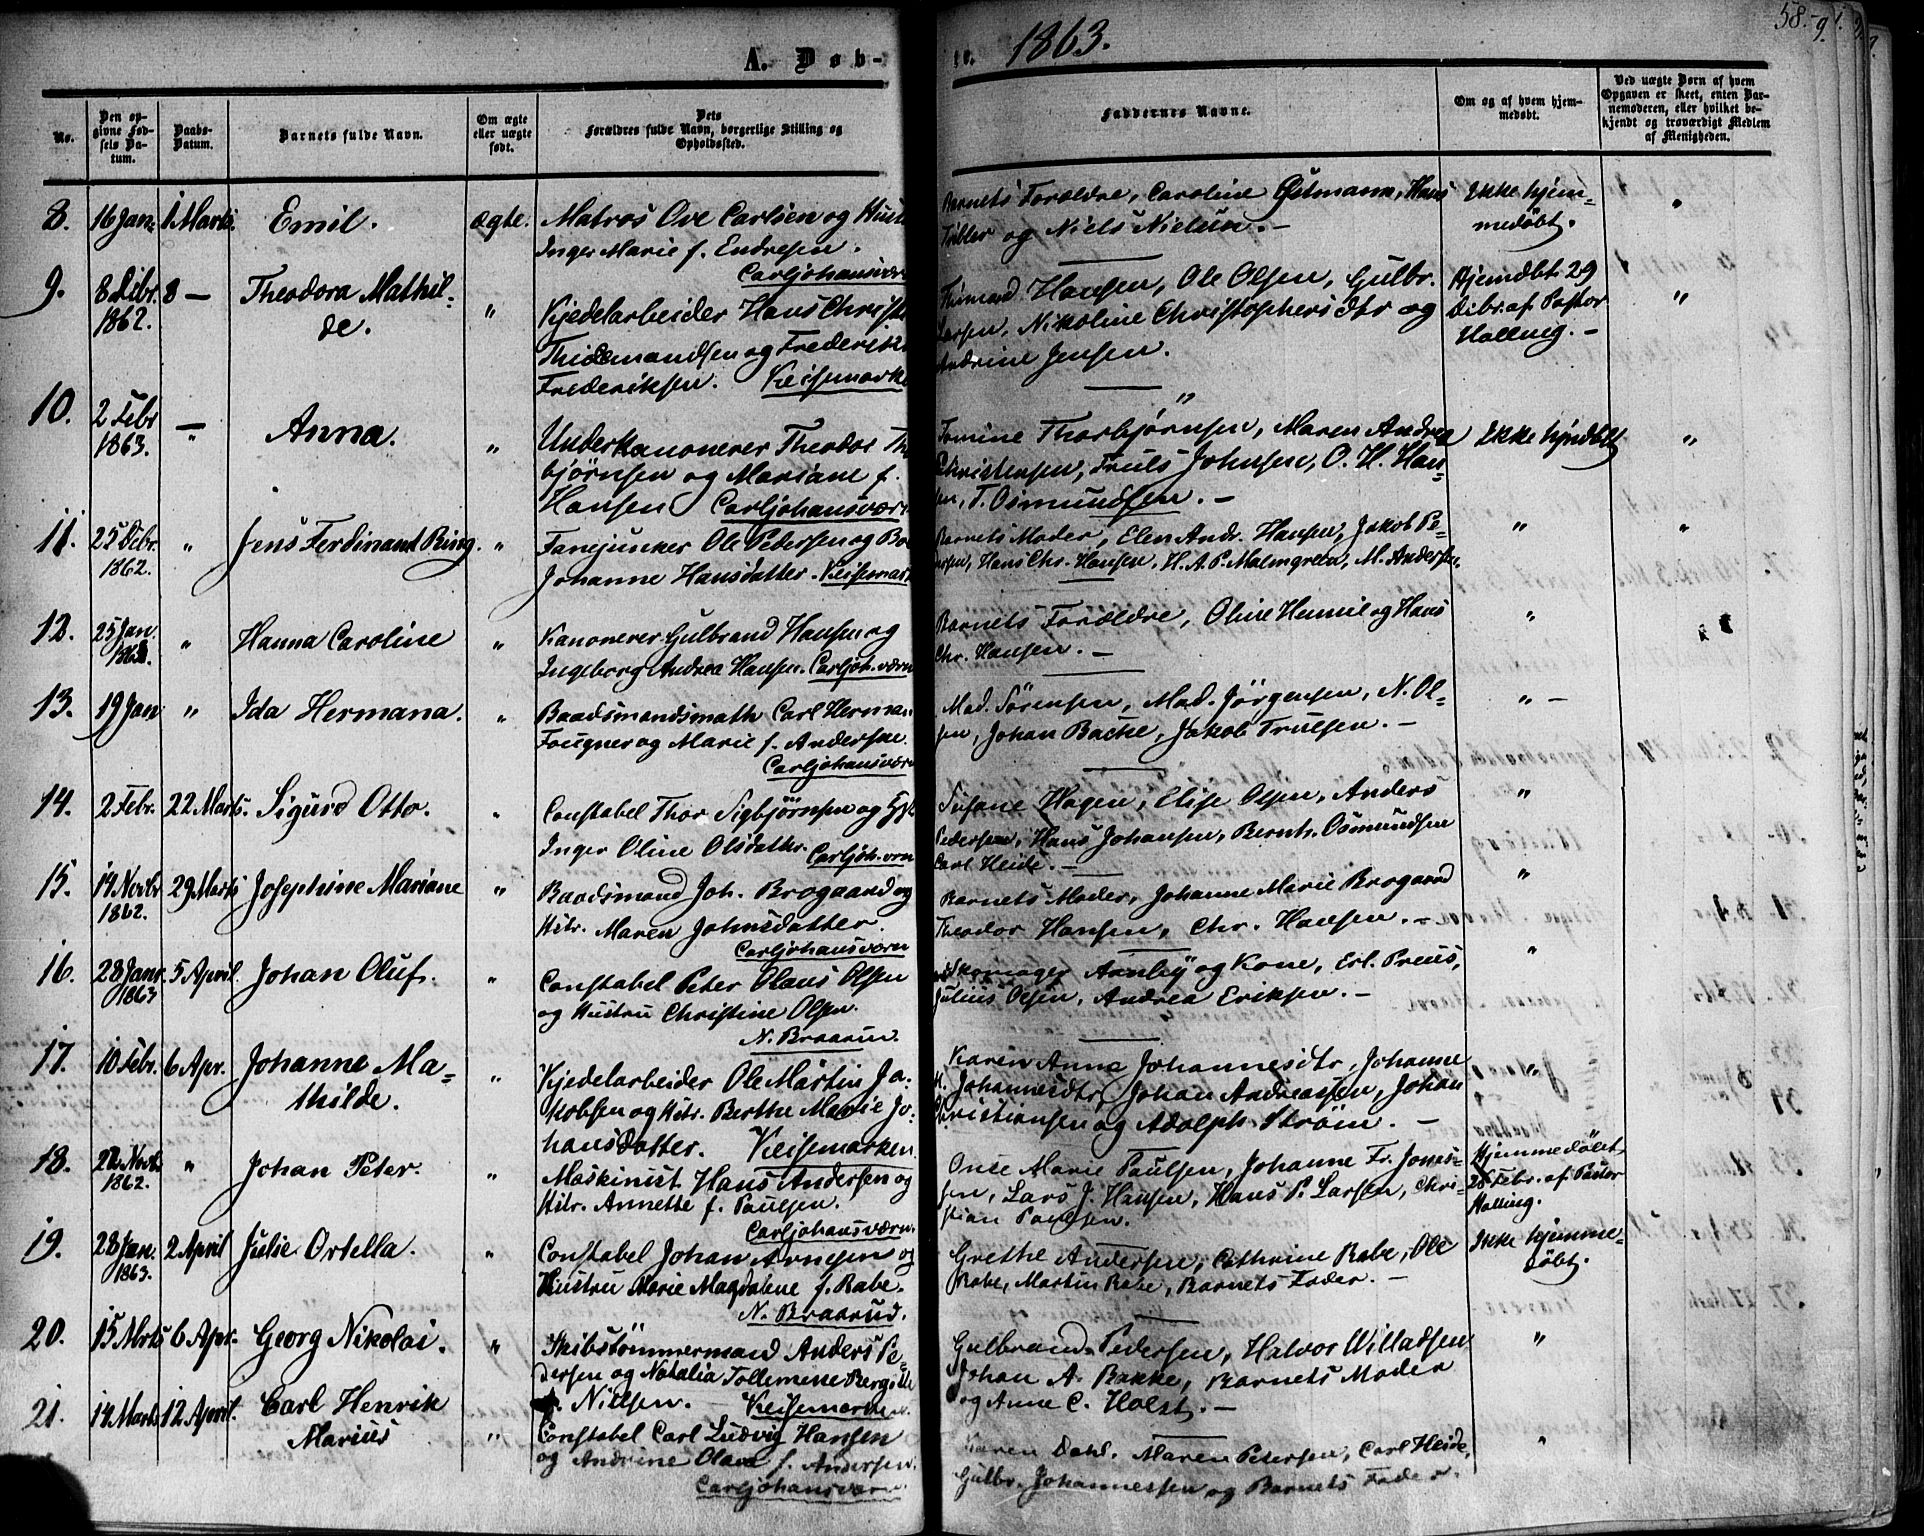 58.
A. Døb-
te. 1863.
No.
Den opgivne Fødsels Datum.
Daabs-Datum.
Barnets fulde Navn.
Om ægte eller uægte født.
Dets Forældres fulde Navn, borgerlige Stilling og Opholdssted.
Faddernes Navne.
Om og af hvem hjemmedøbt.
Ved uægte Børn af hvem Opgaven er skeet, enten Barnemoderen, eller hvilket bekjendt og troværdigt Medlem af Menigheden.
8. 16 Jan. 1 Marts. Emil. ægte. Matros Ove Carlsen og Hustru
Inger Marie f. Endresen.
Carljohansværn
Barnets Forældre, Caroline Østmann, Hans
Tribler og Niels Nielsen.-
Ikke hjem-
medøbt.
"
9. 8 Debr. 1862. 8 — Theodora Mathil-
de. " Kjedelarbeider Hans Christ
Thidemandsen og Frederik
Frederiksen. Keisemark
Thimand Hansen, Ole Olsen, Gulbr.
Larsen, Nikoline Christophersdtr og
Andrine Jensen.
Hjemdbt. 29
Debr. af Pastor
Halling.-
"
10. 2 Febr 1863. — " Anna. " Underkanonerer Theodor Th
bjørnsen og Mariane f.
Hansen Carljohansværn
Tomine Thorbjørnsen, Maren Andrea
Christensen, Truls Johnsen, O. H. Han-
sen, T. Osmundsen.-
Ikke hjmdbt
"
11. 25 Debr. 1862. " Jens Ferdinant Ring. " Fanejunker Ole Pedersen og Bo
Johanne Hansdatter. Keisemark
Barnets Moder, Elen Andr. Hansen, Jakob Pe-
dersen, Hans Chr. Hansen, H. A. P. Malmgreen, M. Andersen.
" "
12. 25 Jan. 1863. " Hanna Caroline " Kanonerer Gulbrand Hansen og
Ingeborg Andrea Hansen. Carljoh.værn
Barnets Forældre, Oline Hennie og Hans
Chr. Hansen.-
"
13. 19 Jan " Ida Hermana. " Baadsmandsmath Carl Herman
Fougner og Marie f. Andersen.
Carljohansværn
Mad. Sörensen, Mad. Jörgensen, N. Ol-
sen, Johan Bache, Jakob Trulsen.-
" -
14. 2 Febr. 22 Marts. Sigurd Otto. " Constabel Thor Sigbjørnsen og
Inger Oline Olsdatter. Carljoh.vrn
Susane Hagen, Elise Olsen, Anders
Pedersen, Hans Johansen, Bernth. Osmundsen
Carl Heide.-
"
15. 14 Novbr 1862. 29 Marts Josephine Mariane " Baadsmand Joh. Brogaard og
Hstr. Maren Johnsdatter.
Carljohansværn
Barnets Moder, Johanne Marie Brogaard
Theodor Hansen, Chr. Hansen.-
"
16. 28 Janr 1863 5 April. Johan Oluf. " Constabel Peter Olaus Olsen
og Hustru Christine Olsen.
N. Braarud.
Skomager Arnby og Kone, Erl. Preus,
Julius Olsen, Andrea Eriksen.-
"
17. 10 Febr. 6 Apr. Johanne Ma-
thilde. " Kjedelarbeider Ole Martin Ja-
kobsen og Hstr. Berthe Marie Jo-
hansdatter. Keisemarken
Karen Anna Johannesdtr, Johanne
M. Johannesdtr, Johan Andreassen, Johan
Christiansen og Adolph Ström.-
"
18. 22 Novb. 1862. " Johan Peter. " Maskinist Hans Andersen og
Hstr. Annette f. Paulsen.
Carljohansværn.
Onse Marie Paulsen, Johanne Fr. Jons-
sen, Lars J. Hansen, Hans P. Larsen, Chri-
stian Paulsen.
Hjemmedöbt
28 Febr. af Pastor
Halling.
19. 28 Jan. 1863. 2 April Julie Ortella. " Constabel Johan Arnesen og
Hustru Marie Magdalene f. Rabe.
N. Braarud.
Grethe Andersen, Cathrine Rabe, Ole
Rabe, Martin Rabe, Barnets Fader.-
Ikke hjemme-
døbt.
20. 15 Mrts 6 Apr. Georg Nikolai. " Skibstömmermand Anders Pe-
dersen og Natalia Tollemine Bergitte
f. Nilsen. Keisemarken.
Gulbrand Pedersen, Halvor Willadsen
Johan A. Bakke, Barnets Moder
og Anne C. Holst.-
"
21. 14 Marts 12 April. Carl Henrik
Marius " Constabel Carl Ludvig Hansen
og Andrine Olava f. Andersen.
Carljohansværn
Karen Dahl. Maren Petersen, Carl Heide,
Gulbr. Johannessen og Barnets Fader.
"